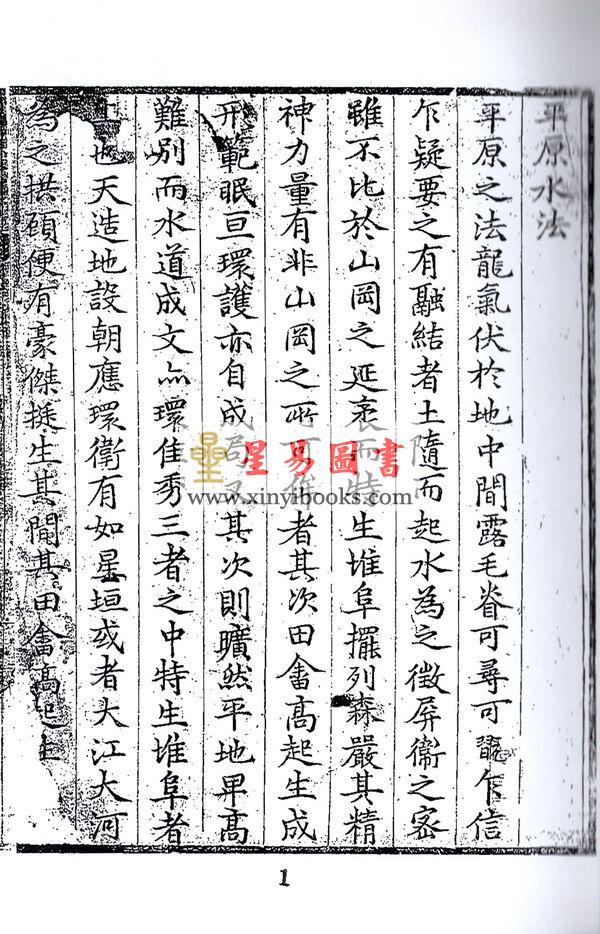 平原水法
平原之法龍氣伏於地中間露毛脊可尋可乍信
乍疑要之有融結者土隨而起水為之徵屏衞之密
雖不比於山岡之延袤而特生堆阜擺列森嚴其精
神力量有非山岡之所可者其次田畬高起生成
形範眠亘環護亦自成其次則曠然平地卑高
難別而水道成文環佳秀三者之中特生堆阜者
也天造地設朝應環衞有如星垣或者大江大河
為之拱顧便有豪傑挺生其間其田畬高起
星易圖書
www.xinyibooks.com
1